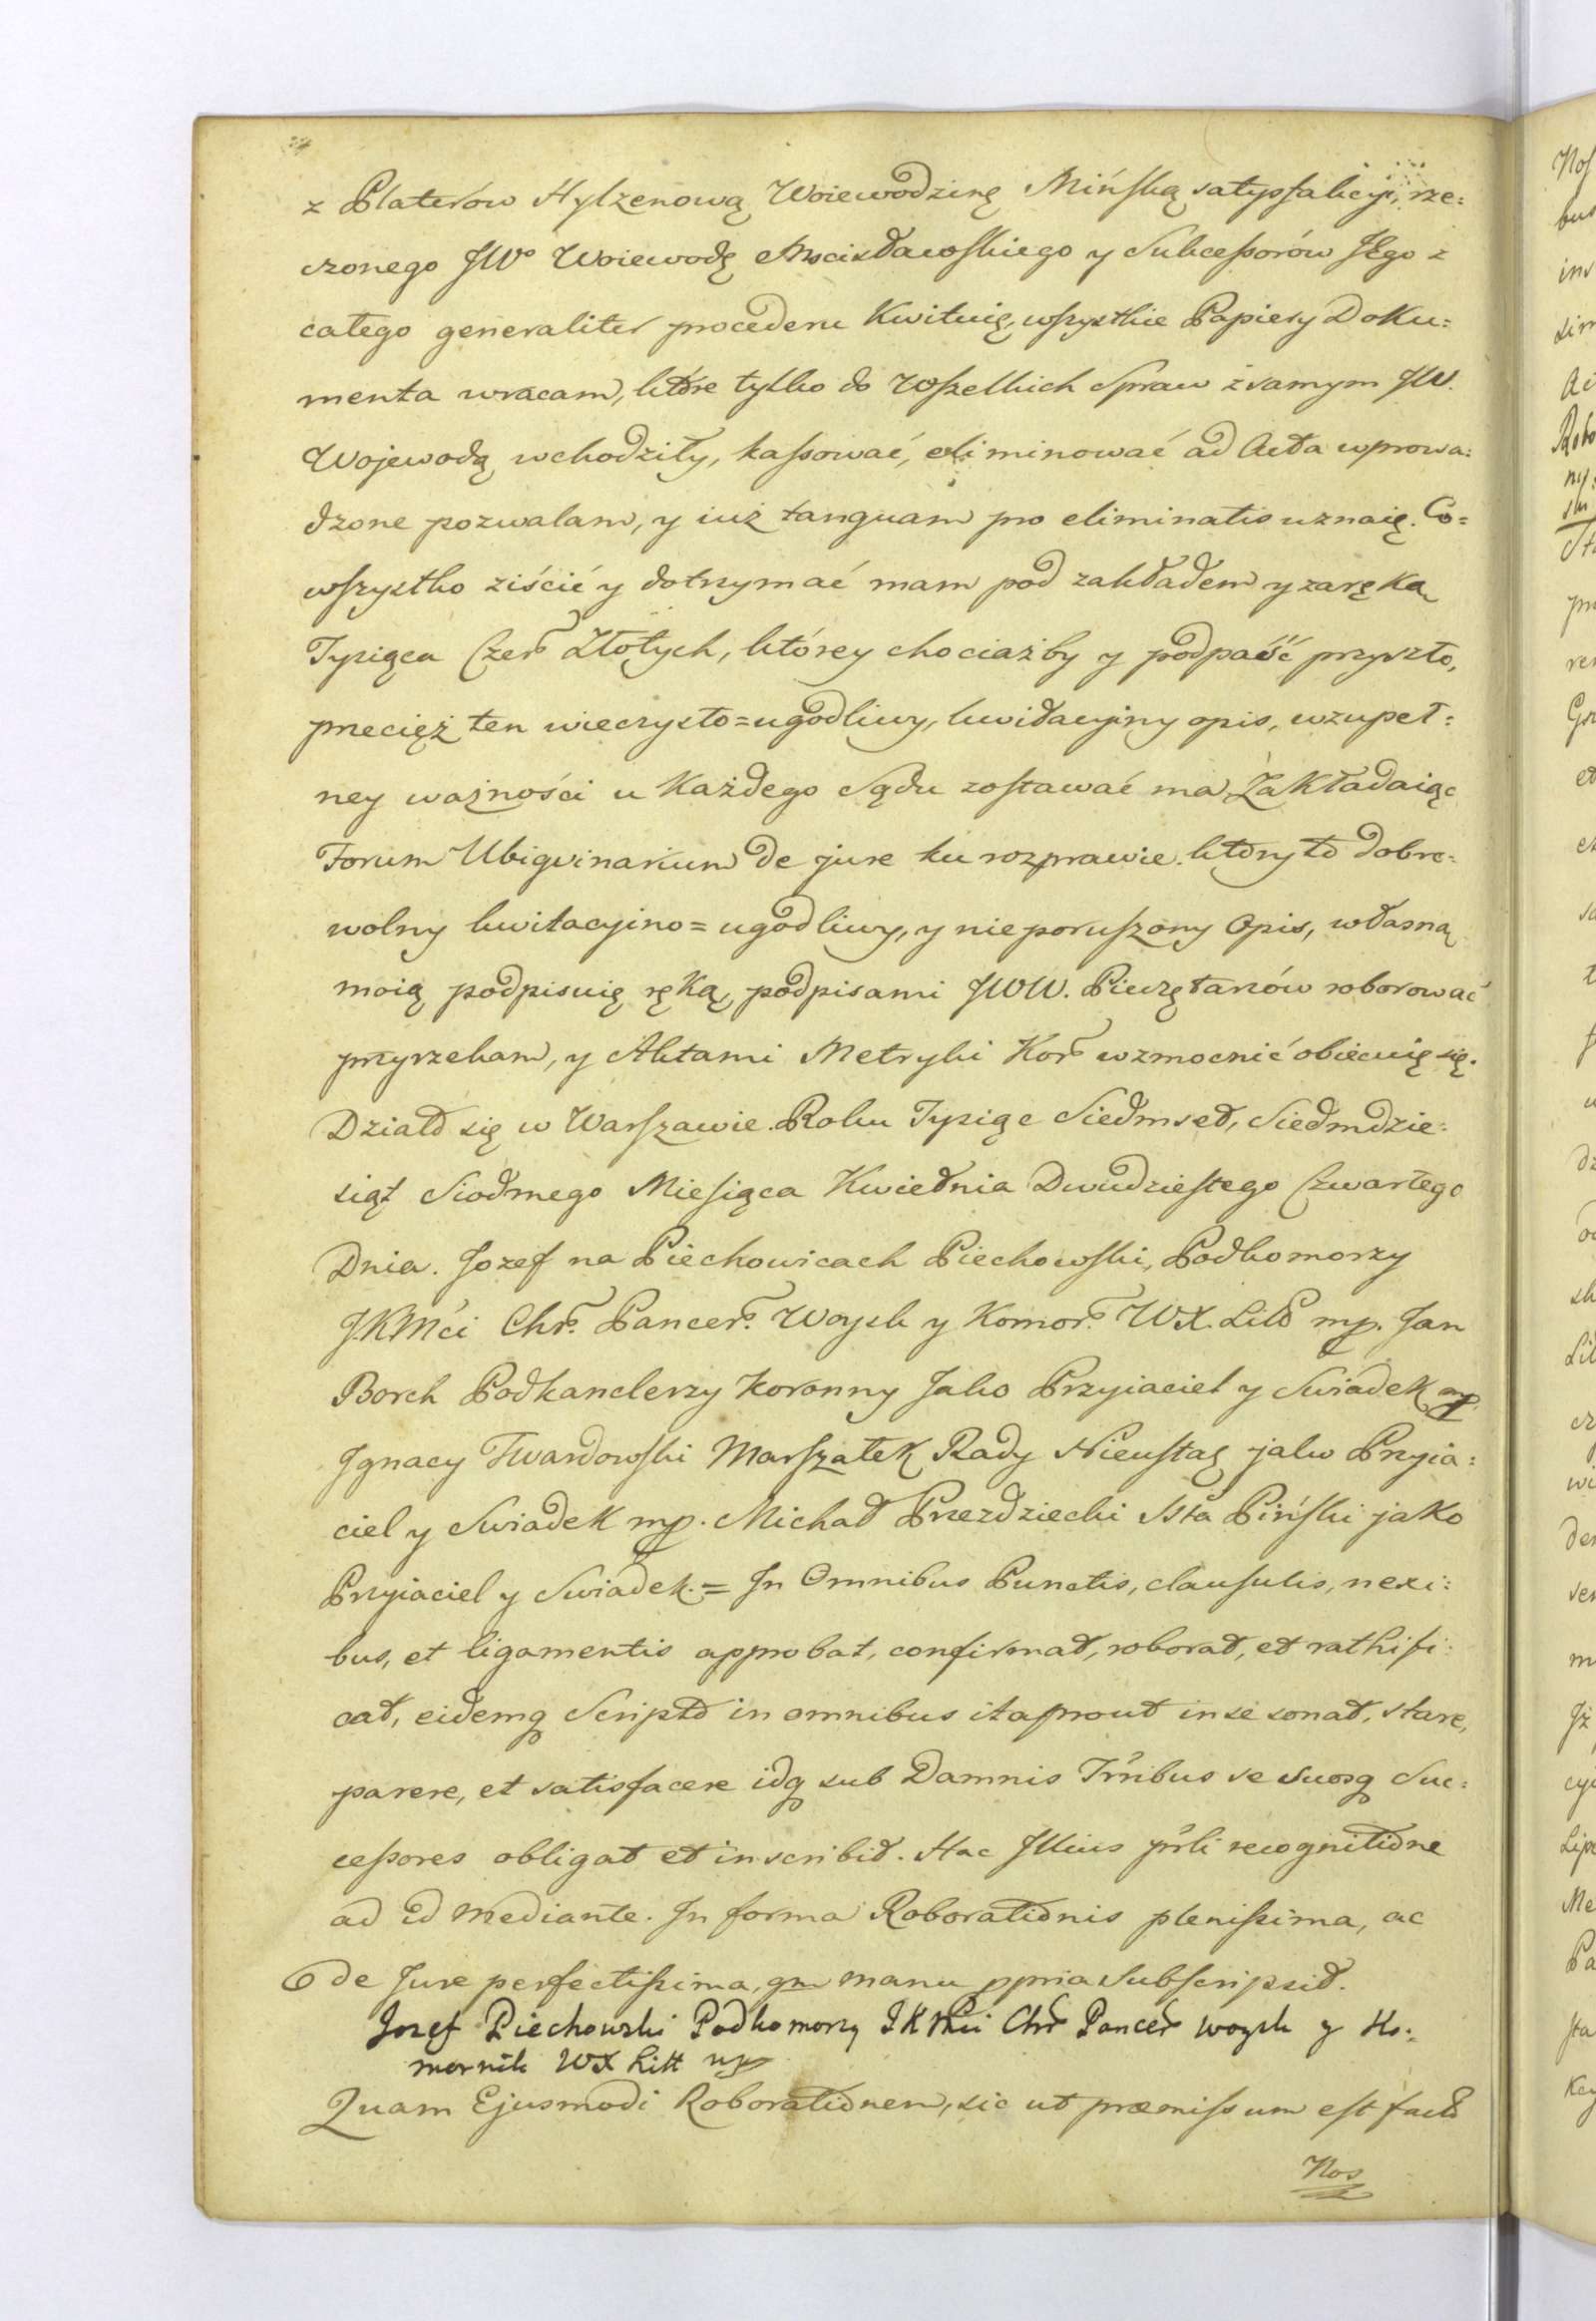 z Platerów Hylzenową Woiewodzinę Mińską satysfakcyi, rze=
czonego JWo Woiewodę Mscisławskiego y Sukceßorów JEgo z
całego generaliter procederu Kwituię, wszystkie Papiery Doku=
menta wracam, które tylko do wszelkich Spraw z samym JW.
Wojewodą wchodziły, kaßować, eliminować ad Acta wprowa=
dzone pozwalam, y iuż tanquam pro eliminatis uznaię. Co=
wszystko ziścić y dotrzymać mam pod zakładem y zaręką
Tysiąca Czer Złotych, którey chociażby y podpaść przyszło,
przecięż ten wieczysto=ugodliwy, kwitacyiny opis, w zupeł=
ney ważności u Każdego Sądu zostawać ma, Zakładaiąc
Forum Ubiqvinarium de jure ku rozprawie. który to dobro=
wolny kwitacyino=ugodliwy, y nieporuszony Opis, własną
moią podpisuię ręką, podpisami JWW. Pieczętarzów roborować
przyrzekam, y Aktami Metryki Kor wzmocnić obiecuię się.
Działo się w Warszawie. Roku Tysiąc Siedmset, Siedmdzie=
siąt Siodmego Miesiąca Kwietnia Dwudziestego Czwartego
Dnia. Jozef na Piechowicach Piechowski, Podkomorzy
JKMći Chr. Pancer. Woysk y Komor. WX. Litt mp. Jan
Borch Podkanclerzy Koronny Jako Przyiaciel y Swiadek mp
Ignacy Twardowski Marszałek Rady Nieustaę jako Przyia=
ciel y Swiadek mp. Michał Przezdziecki Stta Piński jako
Przyiaciel y Swiadek. = In Omnibus Punctis, clausulis, nexi=
bus, et ligamentis approbat, confirmat, roborat, et rathifi=
cat, eidemq Scripto in omnibus ita prout in se sonat, stare,
parere, et satisfacere idq sub Damnis Trribus se Suosq Suc=
ceßores obligat et inscribit. Hac Illius prli recognitione
ad id mediante. In forma Roborationis plenißima, ac
de Jure perfectißima, qm manu ppria Subscripsit.
Jozef Piechowski Podkomorzy JKMci Chr Pancer woysk y Ko=
mornik WX Litt mp
Quam Ejusmodi Roborationem, sic ut præmissum est facto
Nos